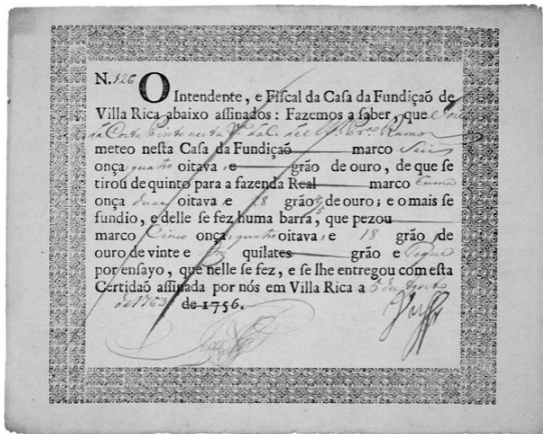 N. 126 O Intendente, e Fiscal da Casa da Fundiçaõ de
Villa Rica abaixo assinados: Fazemos a saber, que
da Costa Pinto
meteo nesta Casa da Fundiçaõ marco Seis
onça quatro oitava e grão de ouro, de que se
tirou de quinto para a fazenda Real marco huma
onça duas oitava e 18 grão de ouro; e o mais se
fundio, e delle se fez huma barra, que pezou
marco Cinco onça quatro oitava, e 18 grão de
ouro de vinte e quilates grão e
por ensayo, que nelle se fez, e se lhe entregou com esta
Certidaõ assinada por nós em Villa Rica a 6 de Agosto
de 1763 de 1756.